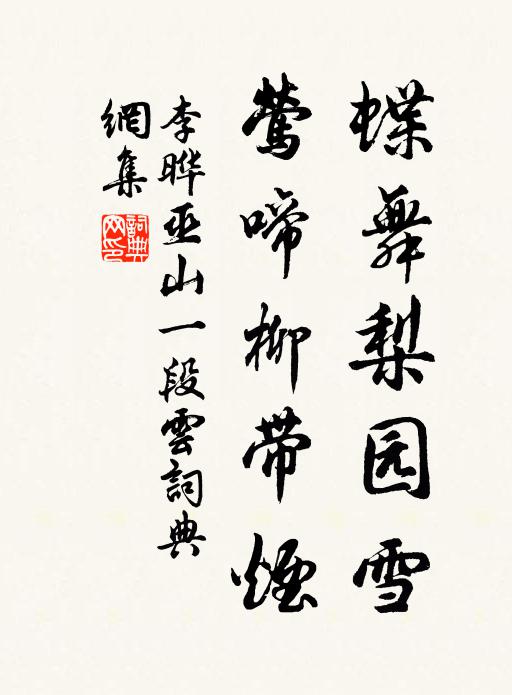 蝶舞梨园雪
莺啼柳带煙
李晔巫山一段雲詞典
網集
詞典网印